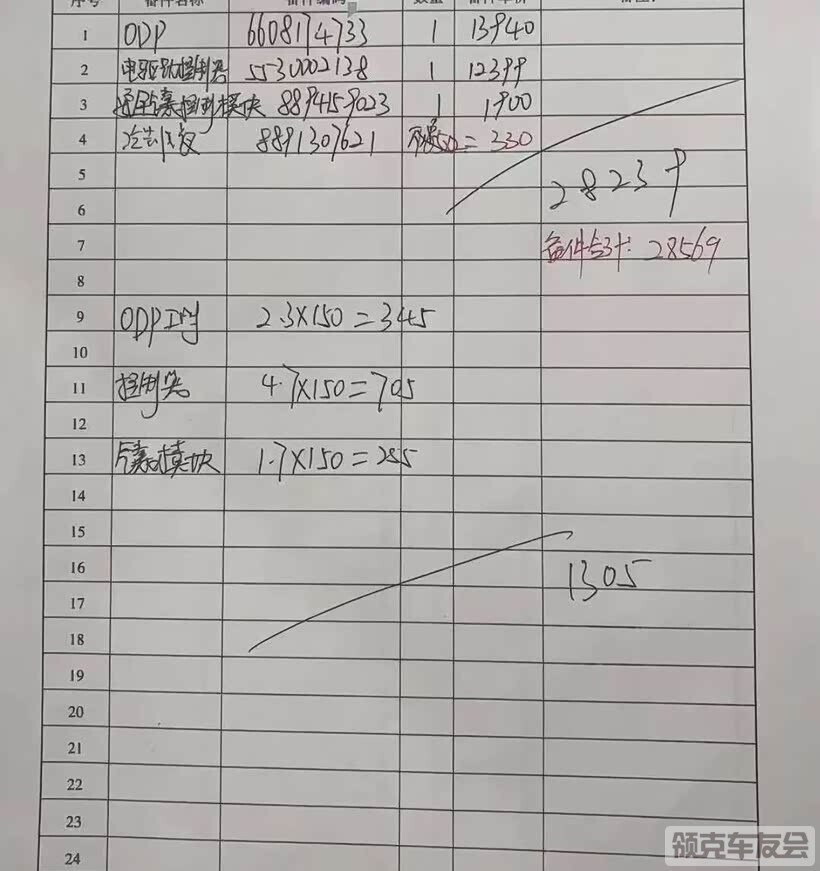 序号 备件名称 备件编码 数量 备件单价 备注
1 ODP 6608174733 1 13940
2 电驱动控制器 5530002138 1 12399
3 镇控制模块 8894159023 1 1900
4 冷却液 8891307621 = 330
5 28239
6
7 备件合计: 28569
8
9 ODP工时 2.3×150=345
10
11 控制器 4.7×150=705
12
13 模块 1.7×150=255
14
15
16 1305
17
18
19
20
21
22
23
24
领克车友会